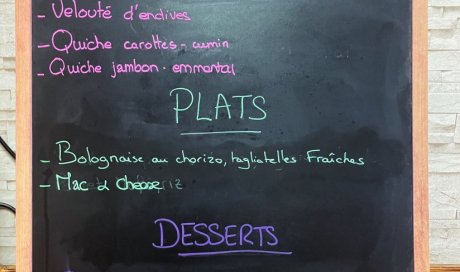 - Velouté d'endives
- Quiche carottes - cumin
- Quiche jambon - emmental
PLATS
- Bolognaise au chorizo, tagliatelles Fraîches
- Mac &
DESSERTS